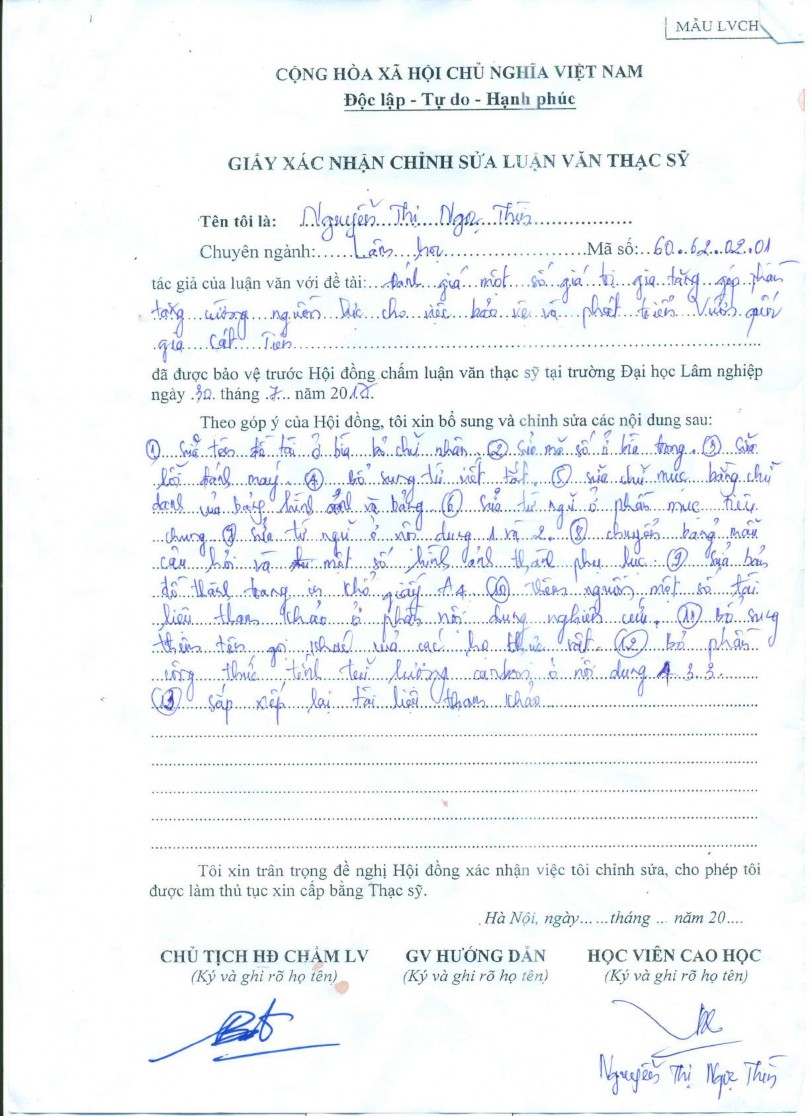 MẪU LVCH
CỘNG HÒA XÃ HỘI CHỦ NGHĨA VIỆT NAM
Độc lập - Tự do - Hạnh phúc
GIẤY XÁC NHẬN CHỈNH SỬA LUẬN VĂN THẠC SỸ
Tên tôi là: Nguyễn Thị Ngọc
Chuyên ngành: Lâm học Mã số: 60.62.02.01
tác giả của luận văn với đề tài: Đánh giá một số giá trị gia tăng góp phần
tăng cường nguồn lực cho việc bảo vệ và phát triển Vườn quốc
gia Cát Tiên
đã được bảo vệ trước Hội đồng chấm luận văn thạc sỹ tại trường Đại học Lâm nghiệp
ngày 30 tháng 7 năm 20
Theo góp ý của Hội đồng, tôi xin bổ sung và chỉnh sửa các nội dung sau:
① Sửa tên đề tài ở bìa bỏ chữ nhân. ② Sửa mã số ở bìa trong. ③ Sửa
lỗi đánh máy. ④ bổ sung từ viết tắt. ⑤ sửa chữ mục bảng chữ
danh của bảng hình ảnh và bảng ⑥ sửa từ ngữ ở phần mục tiêu
chung ⑦ sửa từ ngữ ở nội dung 1 và 2. ⑧ chuyển bảng mẫu
câu hỏi và một số hình ảnh thành phụ lục. ⑨ sửa bản
đồ thành trang in khổ giấy A4 ⑩ thêm nguồn một số tài
liệu tham khảo ở phần nội dung nghiên cứu. ⑪ bổ sung
thêm tên gọi khác của các họ thực vật. ⑫ bỏ phần
công thức tính trữ lượng carbon ở nội dung 4.3.3.
⑬ sắp xếp lại tài liệu tham khảo
Tôi xin trân trọng đề nghị Hội đồng xác nhận việc tôi chỉnh sửa, cho phép tôi
được làm thủ tục xin cấp bằng Thạc sỹ.
Hà Nội, ngày...... tháng ... năm 20....
CHỦ TỊCH HĐ CHẤM LV GV HƯỚNG DẪN HỌC VIÊN CAO HỌC
(Ký và ghi rõ họ tên) (Ký và ghi rõ họ tên) (Ký và ghi rõ họ tên)
Nguyễn Thị Ngọc